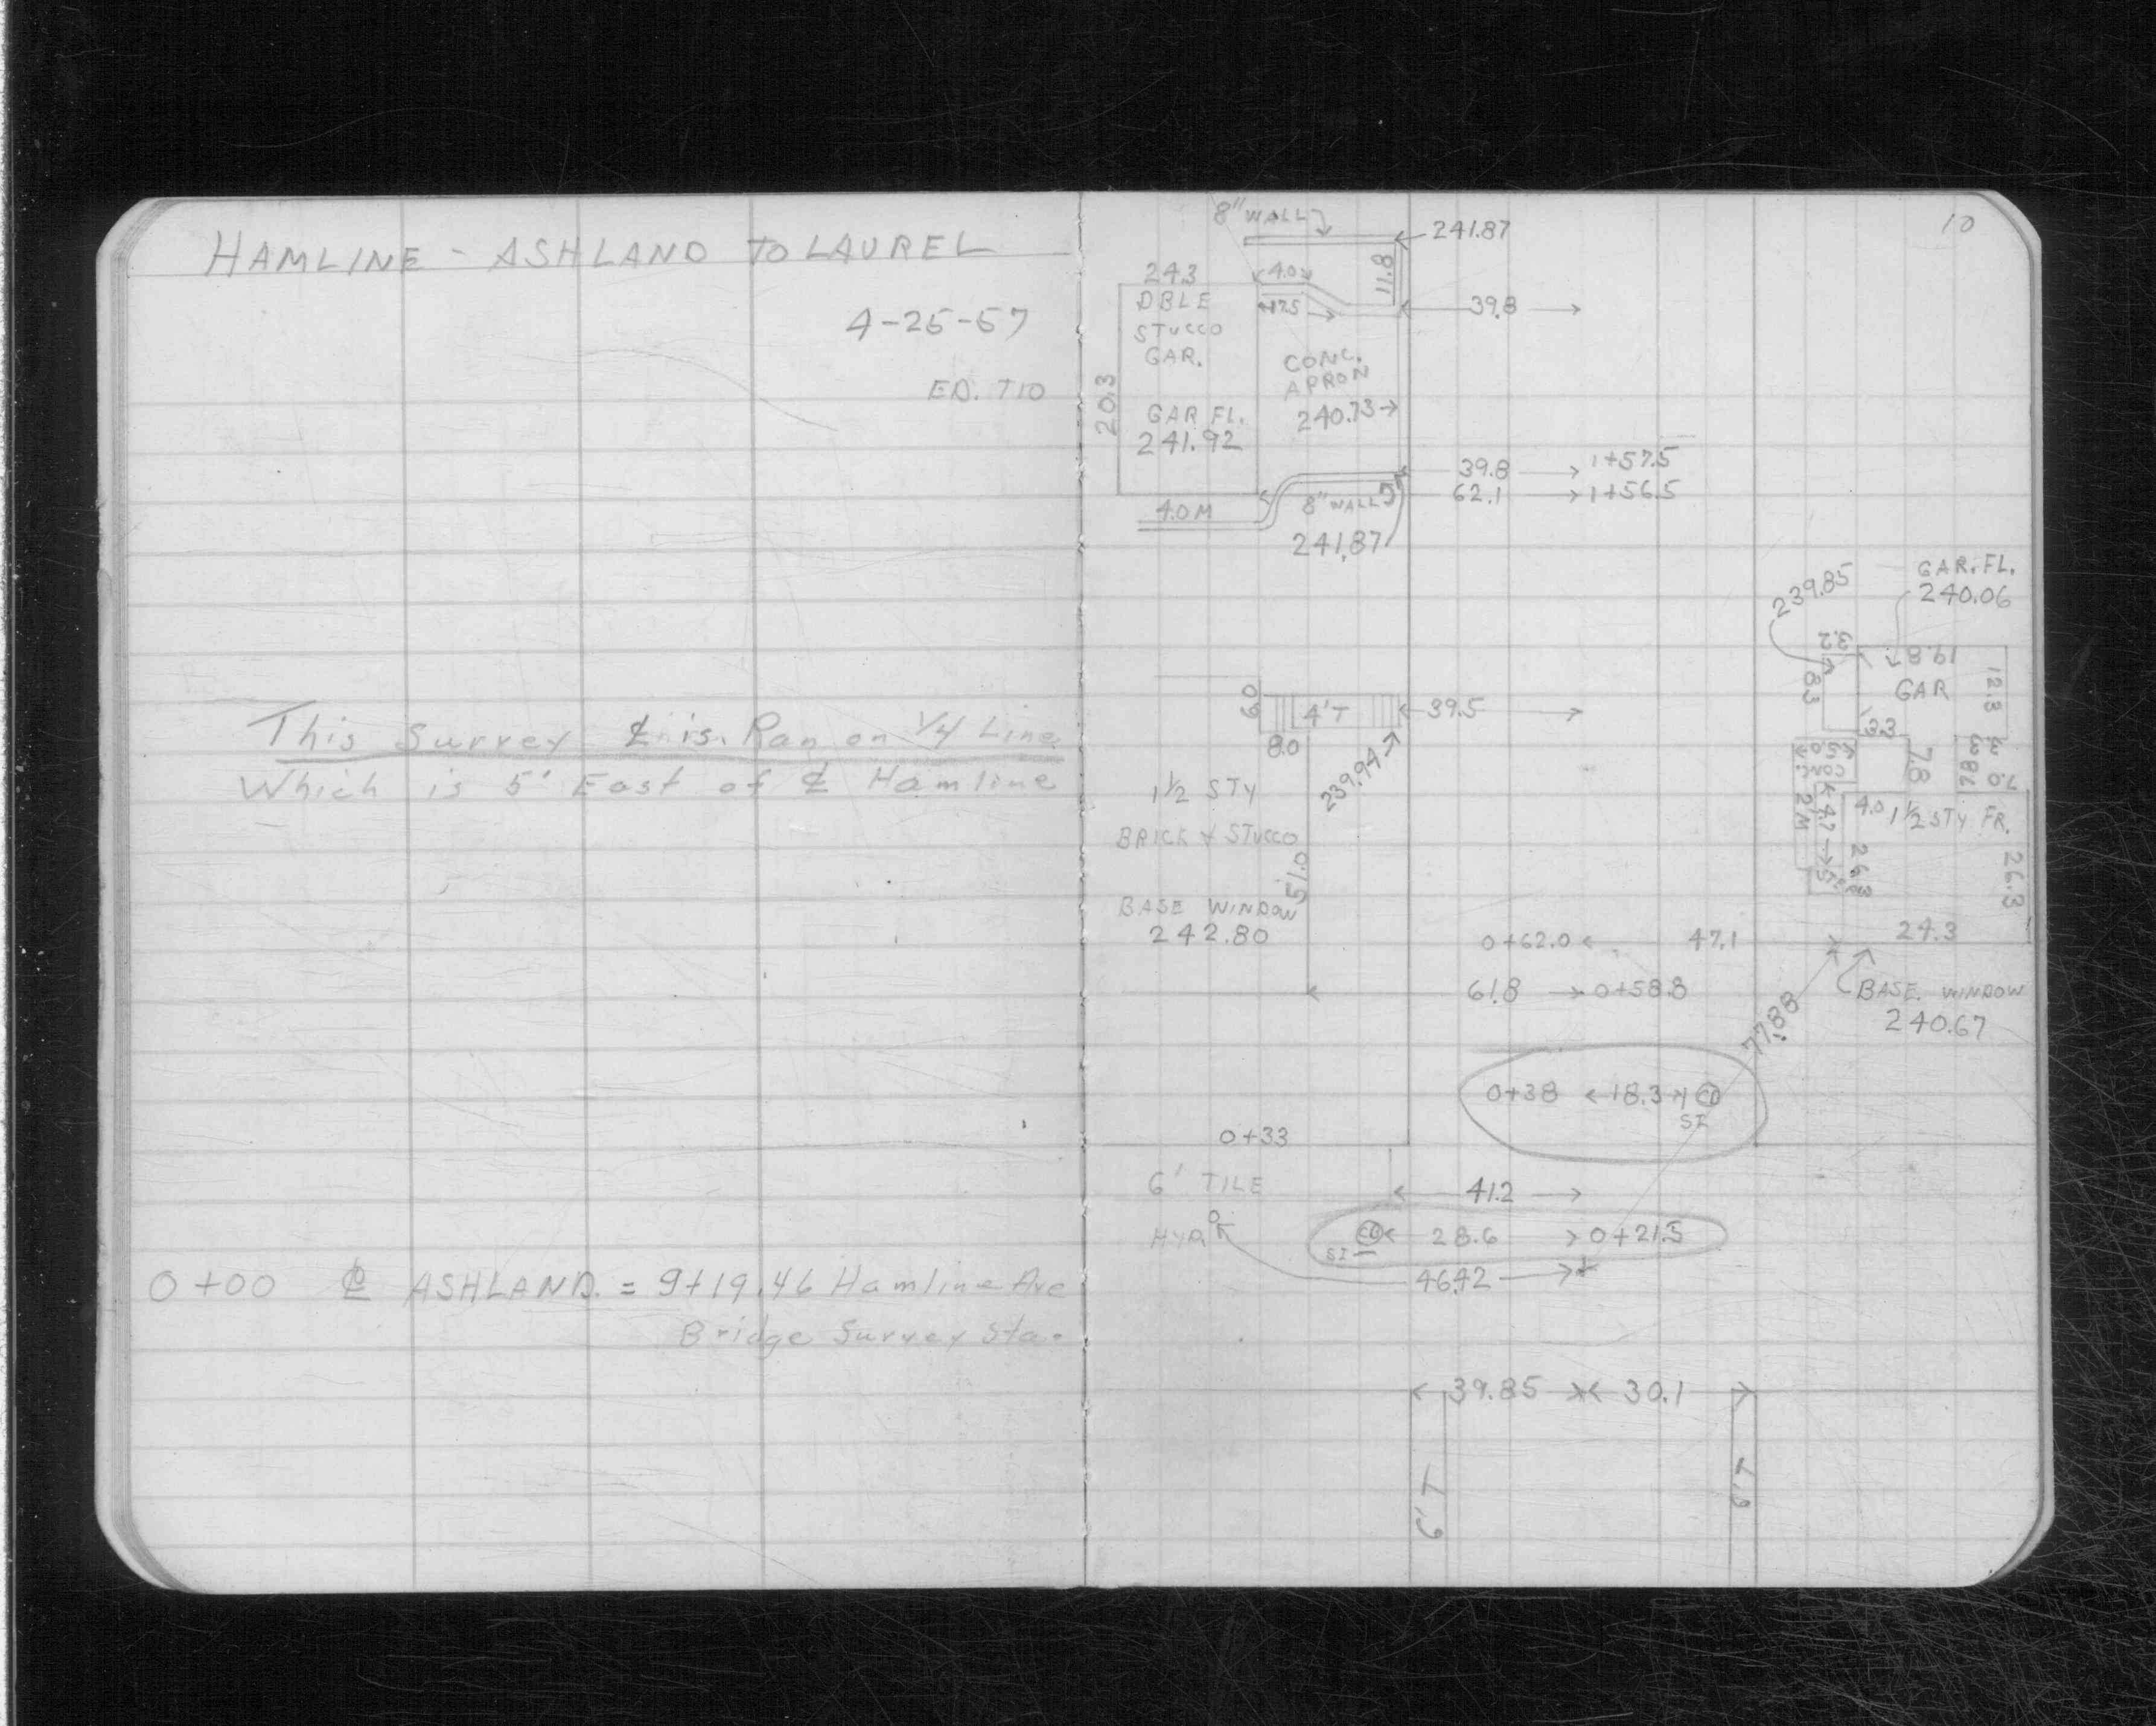 HAMLINE - ASHLAND TO LAUREL
4-25-57
ED. T10
This Survey ℄ is Ran on 1/4 Line
Which is 5' East of ℄ Hamline
0+00 ℄ ASHLAND. = 9+19.46 Hamline Ave
Bridge Survey Sta.
10
8" WALL
241.87
24.3
4.0
11.8
DBLE
STUCCO
GAR.
17.5
39.8
CONC.
APRON
20.3
GAR FL.
241.92
240.73
39.8 1+57.5
62.1 1+56.5
4.0 M
8" WALL
241.87
GAR. FL.
240.06
239.85
3.2
19.8
GAR
8.3
12.3
3.3
6.0
4'T
39.5
8.0
239.94
7.8
7.8
7.0
1 1/2 STY
BRICK & STUCCO
51.0
BASE WINDOW
242.80
4.0
1 1/2 STY FR.
2 M
4.7
26.3
26.3
0+62.0
47.1
24.3
61.8 0+58.8
BASE. WINDOW
240.67
77.88
0+38 18.3 CO
SI
0+33
6' TILE
41.2
HYD.
CO 28.6 0+21.5
SI
46.42
39.85 30.1
6'T
6'T